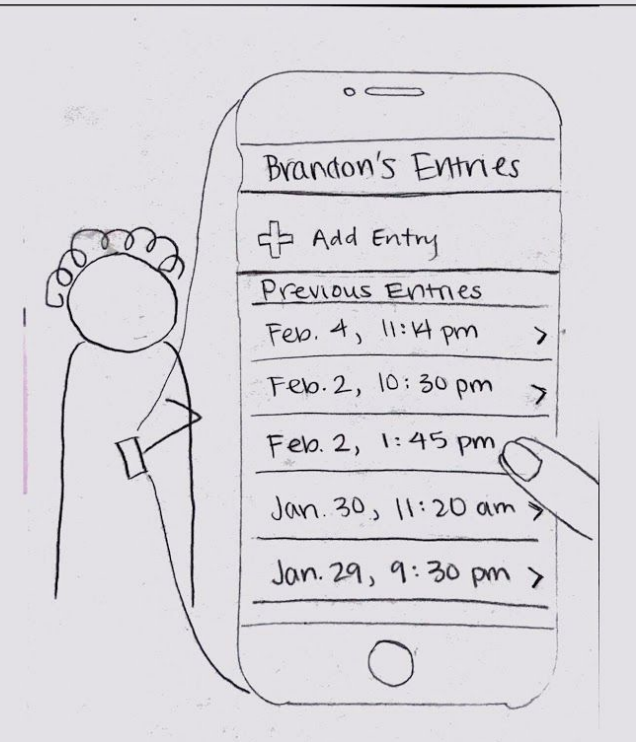 Brandon's Entries
Add Entry
Previous Entries
Feb. 4, 11:14 pm
Feb. 2, 10:30 pm
Feb. 2, 1:45 pm
Jan. 30, 11:20 am
Jan. 29, 9:30 pm